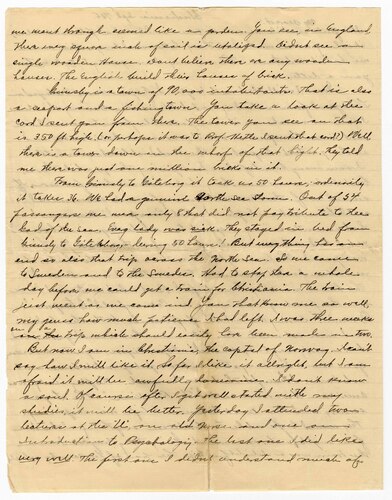 we went through seemed like a garden. You see, in England,
there every square inch of soil is utilized. Didnt see a
single wooden House. Dont believe there are any wooden
houses. The English build their houses of brick.
Grimsby is a town of 90,000 inhabitants. That is also
a seaport and a fishing town. You take a look at the
Card I sent you from there. The tower you see on that
is 350 ft. high. (or perhaps it was to Prof. that I sent that card?) Well,
there is a tower down in the wharf of that hight. They told
me there was just one million bricks in it.
From Grimsby to Göteborg it took us 50 hours, ordinarily
it takes 36. We had a genuine North Sea Storm. Out of 34
passengers we were only 8 that did not pay tribute to the
God of the Sea. Every lady was sick. They stayed in bed from
Grimsby to Göteborg, during 50 hours! But everything has an
end so also that trip across the North Sea. So we came
to Sweden and to the Swedes. Had to stay there a whole
day before we could get a train for Christiania. The train
just went as we came and you that know me so well,
may guess how much patience I had left. I was three weeks
on a trip which should easily have been made in two.
But now I am in Christiania, the capital of Norway. I can't
say how I will like it. So far I like it allright, but I am
afraid it will be awfully lonesome. I don't know
a soul. Of course after I get well started with my
studies, it will be better. Yesterday I attended two
lectures at the U., one old Norse and one on
Introduction to Psychology. The last one I did like
very well. The first one I didn't understand much of.